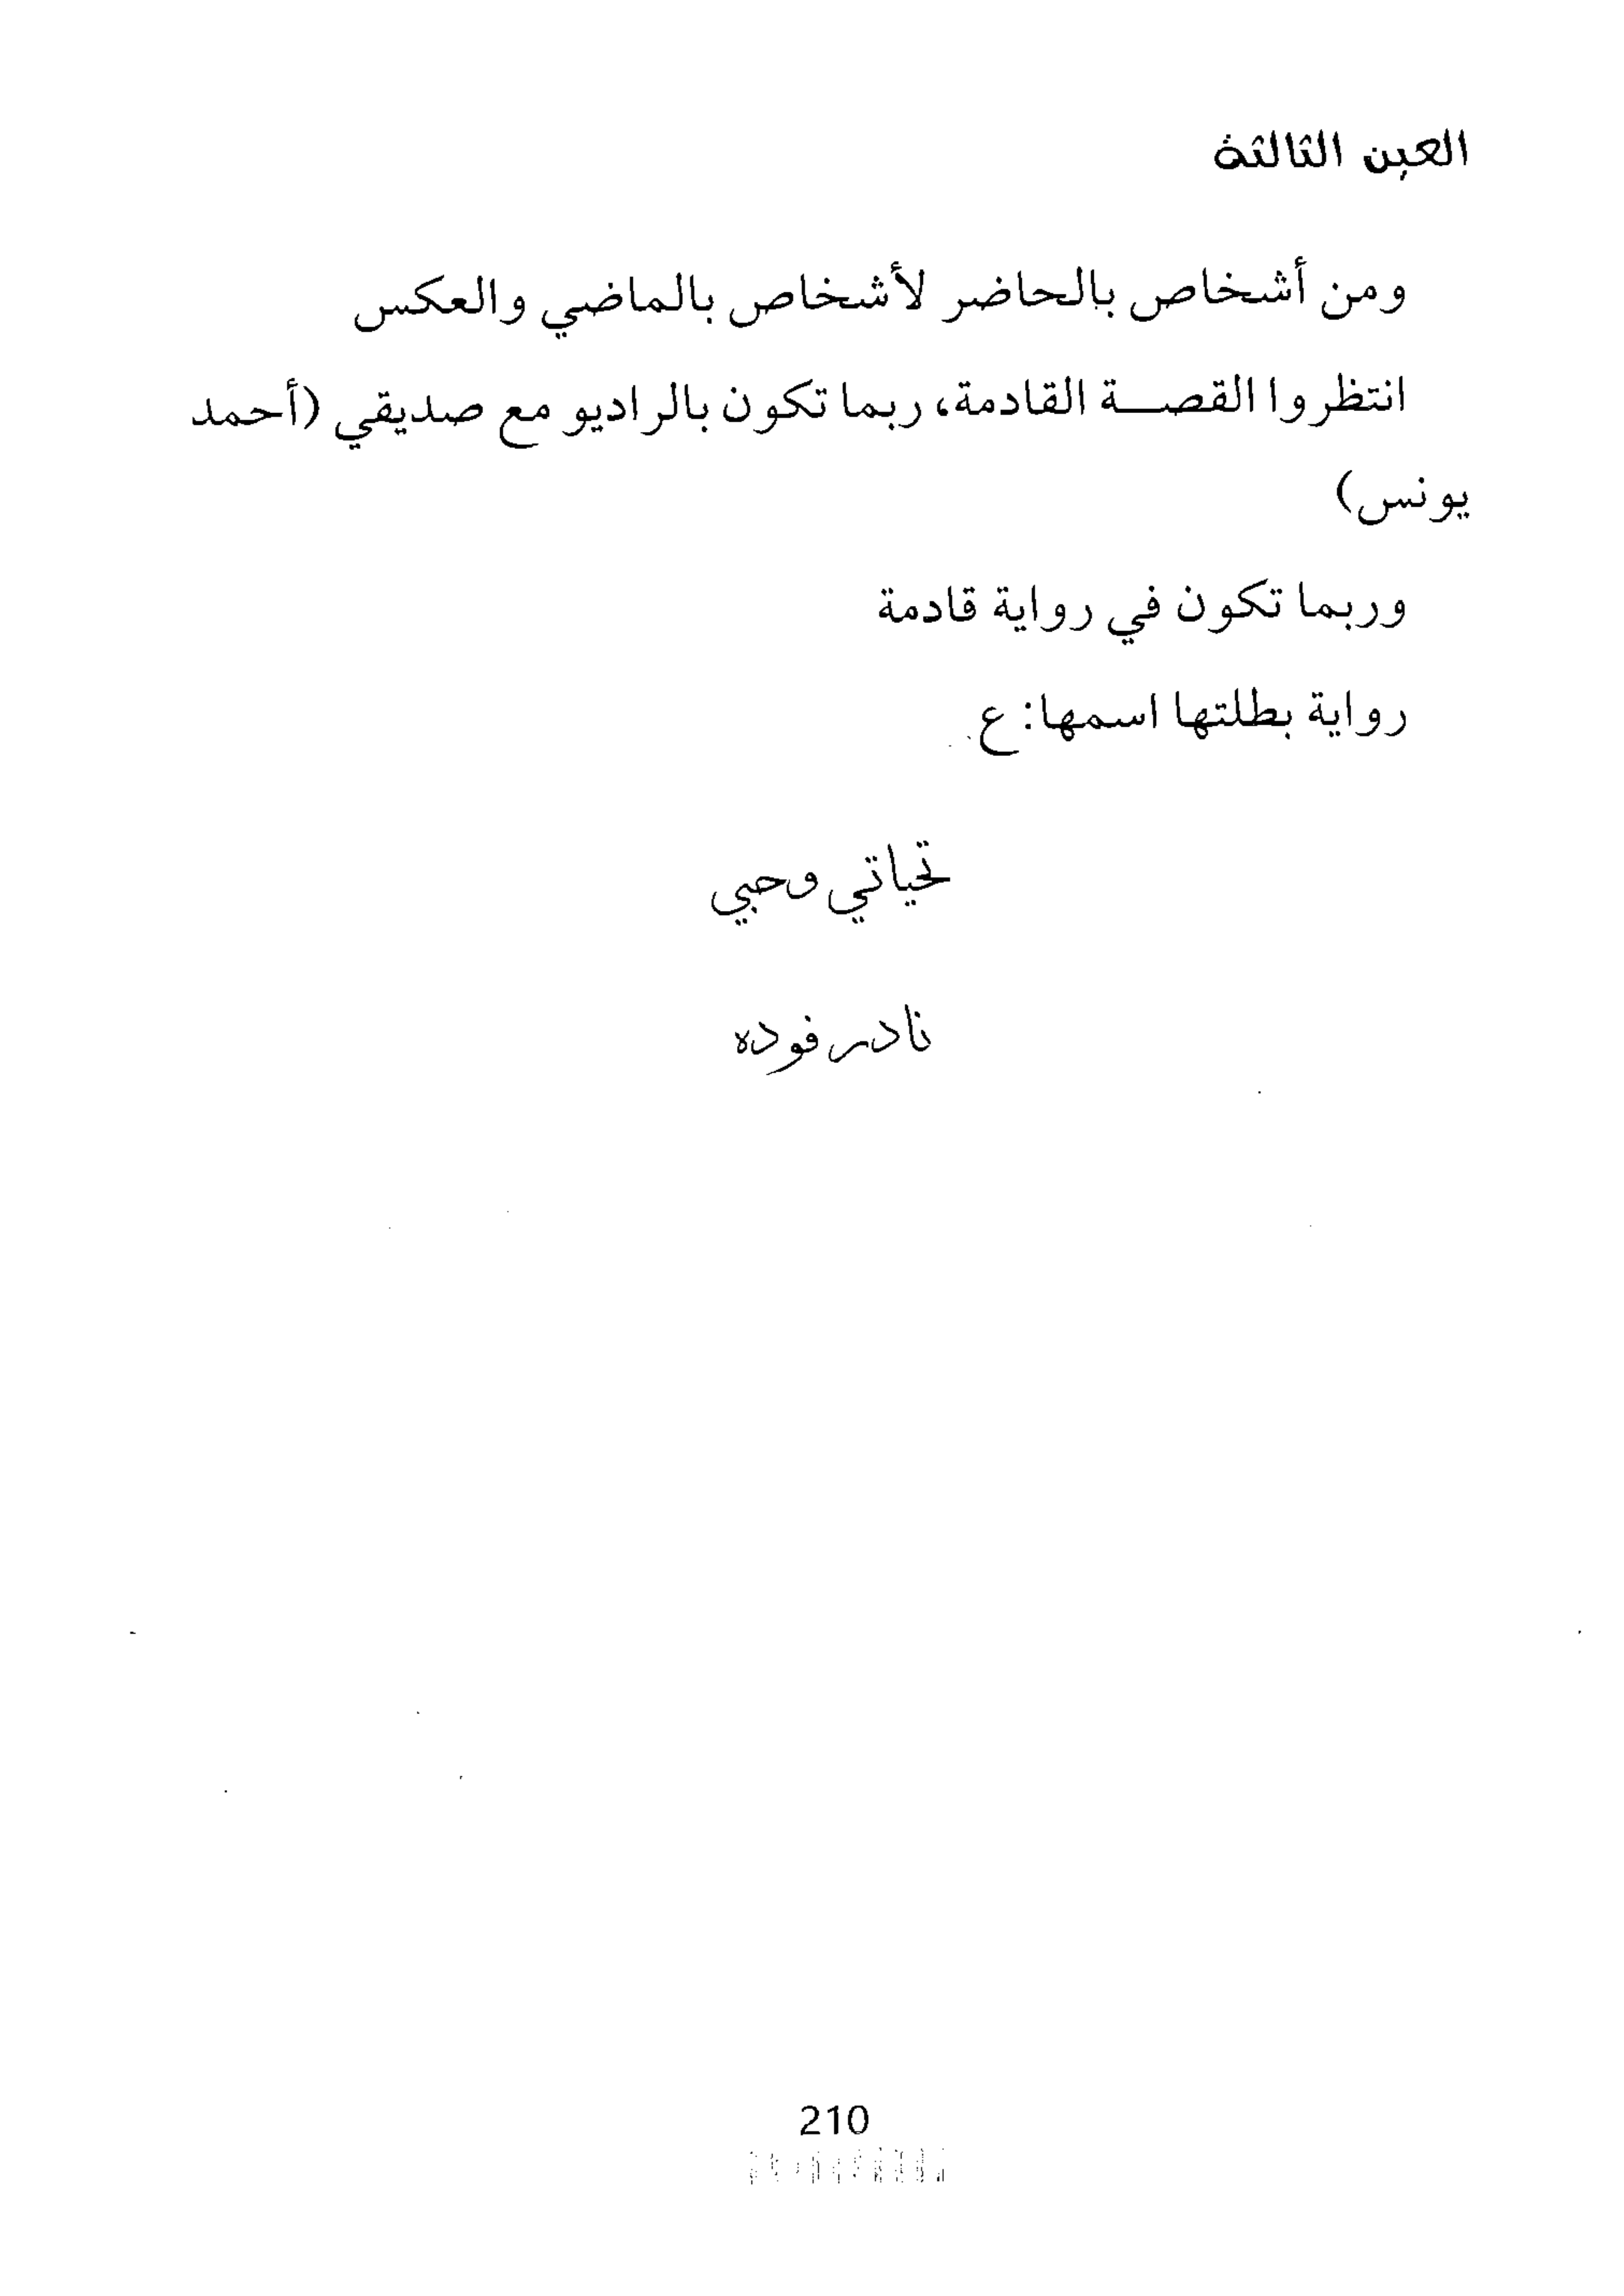 العين الثالثة
ومن أشخاص بالحاضر لأشخاص بالماضي والعكس
انتظروا القصـة القادمة، ربما تكون بالراديو مع صديقي (أحمد
يونس)
وربما تكون في رواية قادمة
رواية بطلتها اسمها: ع
تحياتي وحبي
نادر فوده
210